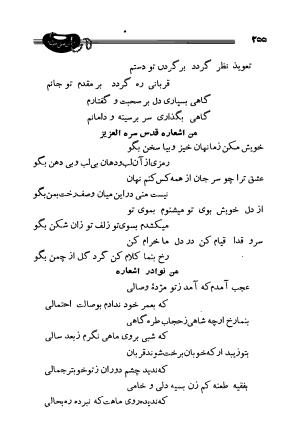 ۲۵۵
تعویذ نظر گردد برگردن تو دستم
قربانی ره گردد بر مقدم تو جانم
گاهی بسپاری دل بر سحبت و گفتارم
گاهی بگذاری سر برسینه و دامانم
من اشعاره قدس سره العزیز
خویش مکن زمانهان خیز و بیا سخن بگو
رمزی از آن لب و دهان بی لب و بی دهن بگو
عشق ترا چو سر جان از همه کس کنم نهان
نیست منی در این میان وصف رخت بمن بگو
از دل خویش بوی تو میشنوم بموی تو
میکشدم بسوی تو زلف تو زان شکن بگو
سرو قدا قیام کن در دل ما خرام کن
رخ بنما کلام کن گرد گل از چمن بگو
من نوادر اشعاره
عجب آمدم که آمد ز تو مژدهٔ وصالی
که بعمر خود ندادم بوصالت احتمالی
بنما رخ ارچه شاهی ز حجاب طره گاهی
که شبی بروی ماهی نگرم ز بعد سالی
بتو زیبد ار که خوبان برخت شوند قربان
که ندید چشم دوران ز تو خوبتر جمالی
بفقیه طعنه کم زن بسیه دلی و خامی
که ندیده روی ماهت که نبرده ره بحالی